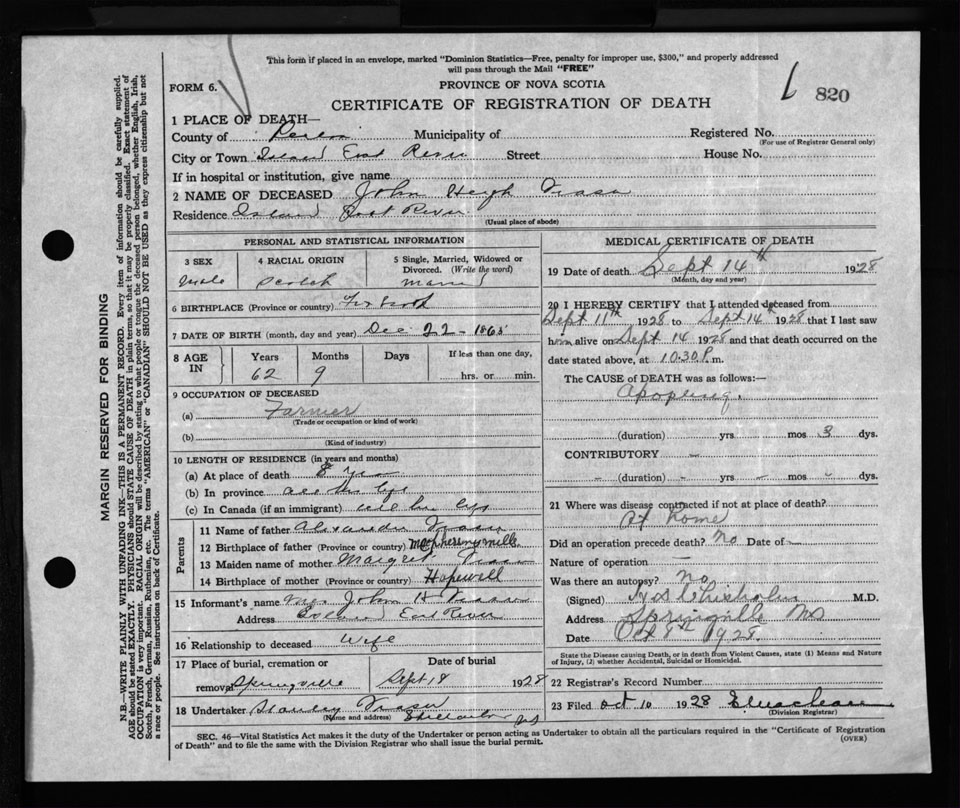 This form if placed in an envelope, marked "Dominion Statistics—Free, penalty for improper use, $300," and properly addressed
will pass through the Mail "FREE"
FORM 6.
PROVINCE OF NOVA SCOTIA
CERTIFICATE OF REGISTRATION OF DEATH
820
1 PLACE OF DEATH—
County of Municipality of Registered No.
(For use of Registrar General only)
City or Town Island East River Street House No.
If in hospital or institution, give name
2 NAME OF DECEASED John Hugh Fraser
Residence Island East River
(Usual place of abode)
PERSONAL AND STATISTICAL INFORMATION
3 SEX 4 RACIAL ORIGIN 5 Single, Married, Widowed or
Divorced. (Write the word)
Male Scotch Married
6 BIRTHPLACE (Province or country)
7 DATE OF BIRTH (month, day and year) Dec 22 - 1865
8 AGE IN Years Months Days If less than one day,
62 9 hrs. or min.
9 OCCUPATION OF DECEASED
(a) Farmer
(Trade or occupation or kind of work)
(b)
(Kind of industry)
10 LENGTH OF RESIDENCE (in years and months)
(a) At place of death 8 yrs
(b) In province all his life
(c) In Canada (if an immigrant) all his life
Parents
11 Name of father Alexander Fraser
12 Birthplace of father (Province or country) McPhersons mills
13 Maiden name of mother Margret Fraser
14 Birthplace of mother (Province or country) Hopewell
15 Informant's name Mrs John H Fraser
Address Island East River
16 Relationship to deceased Wife
17 Place of burial, cremation or Date of burial
removal Springville Sept 18 1928
18 Undertaker Stanley Fraser
(Name and address) Stellarton NS
MEDICAL CERTIFICATE OF DEATH
19 Date of death Sept 14th 1928
(Month, day and year)
20 I HEREBY CERTIFY that I attended deceased from
Sept 11th 1928 to Sept 14th 1928 that I last saw
him alive on Sept 14 1928 and that death occurred on the
date stated above, at 10.30 P.m.
The CAUSE OF DEATH was as follows:—
Apoplexy.
(duration) yrs mos 3 dys.
CONTRIBUTORY -
- (duration) - yrs - mos - dys.
21 Where was disease contracted if not at place of death?
At home
Did an operation precede death? No Date of —
Nature of operation —
Was there an autopsy? No
(Signed) Chisholm M.D.
Address Springville NS
Date Oct 8th 1928.
State the Disease causing Death, or in death from Violent Causes, state (1) Means and Nature
of Injury, (2) whether Accidental, Suicidal or Homicidal.
22 Registrar's Record Number
23 Filed Oct 10 1928
(Division Registrar)
SEC. 46—Vital Statistics Act makes it the duty of the Undertaker or person acting as Undertaker to obtain all the particulars required in the "Certificate of Registration
of Death" and to file the same with the Division Registrar who shall issue the burial permit.
(OVER)
MARGIN RESERVED FOR BINDING
N.B.—WRITE PLAINLY WITH UNFADING INK—THIS IS A PERMANENT RECORD. Every item of information should be carefully supplied.
AGE should be stated EXACTLY. PHYSICIANS should STATE CAUSE OF DEATH in plain terms, so that it may be properly classified. Exact statement of
OCCUPATION is very important. RACIAL ORIGIN will be described by stating to what people or tongue the deceased person belonged, whether English, Irish,
Scotch, French, German, Russian, Ruthenian, etc. The terms "AMERICAN" or "CANADIAN" SHOULD NOT BE USED as they express citizenship but not
a race or people. See instructions on back of Certificate.